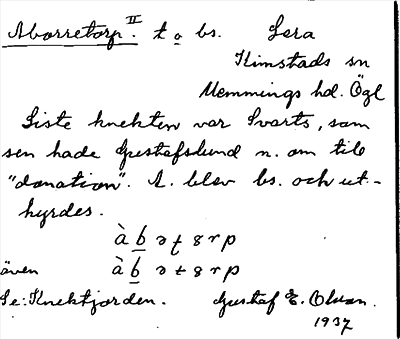 Aborretorp. II t o bs. Lera
Kimstads sn
Memmings hd. Ögl
Siste knekten var Svarts, som
sen hade Gustafslund n. om till
"donation". A. blev bs. och ut-
hyrdes.
à b ə ƭ 8 r p
även à b ə t 8 r p
Se: Knektjorden. Gustaf E. Olsson.
1937